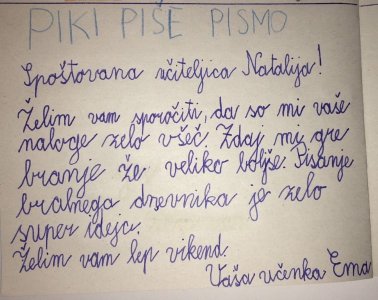 PIKI PIŠE PISMO
Spoštovana učiteljica Natalija!
Želim vam sporočiti, da so mi vaše
naloge zelo všeč. Zdaj mi gre
branje že veliko boljše. Pisanje
bralnega dnevnika je zelo
super ideja.
Želim vam lep vikend.
Vaša učenka Ema